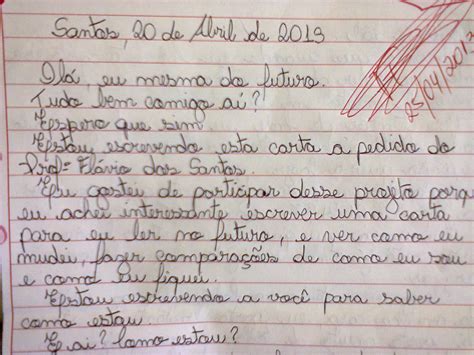 Santos, 20 de Abril de 2013
25/04/2013
Olá, eu mesma do futuro.
Tudo bem comigo aí?!
Espero que sim
Estou escrevendo esta carta a pedido do
Prof= Flávio dos Santos.
Eu gostei de participar desse projeto porq
eu achei interessante escrever uma carta
para eu ler no futuro, e ver como eu
mudei, fazer comparações de como eu sou
e como eu fiquei.
Estou escrevendo a você para saber
como estou.
E aí? Como estou?